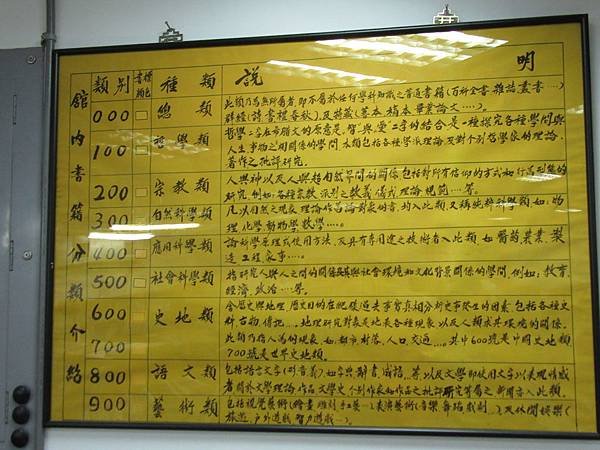 館內書籍分類介紹
類別 書標顏色 種類 說明
000 總類
此類乃為無所屬者,即不屬於任何學科知識之普通書籍(百科全書.雜誌叢書…)
群經(詩書禮春秋).及典藏(善本.稿本畢業論文….)。
100 哲學類
哲學二字在希臘文的原意是,智與愛二字的結合是一種探究各種學問與
人生事物之間關係的學問.本類包括各學派理論及對個別哲學家的理論、
著作之批評研究.
200 宗教類
人與神以及人與超自然界間的關係.包括對所有信仰的方式如行為
的研究.例如:各種宗教.派別之教義儀式理論規範…等。
300 自然科學類
凡以自然之現象.理論作為論對象的書.均入此類.又稱純粹科學類.如:物
理.化學.動物學.數學….。
400 應用科學類
論科學原理或使用方法.及具有專用途之技術者入此類.如醫藥.農業.製
造.工程.家事…。
500 社會科學類
指研究人與人之間的關係與社會環境和文化背景關係的學問.例如:教育.
經濟.政治…等。
600 700 史地類
含歷史與地理.歷史目的在把發過去事實真相分析史事發生的因素.包括各種史
料.古物.傳記….地理研究對象是地表各種現象以及人類求其環境的關係.
此類乃指人為的現象.如:都市.村落.人口.交通….其中600號是中國史地類
700號是世界史地類.
800 語文類
包括語言文字(形音義)如字典辭書.成語.等.以及文學即使用文字以表現情感
者關於文學理論.作品.文學史.個別作家和作品之批評研究等屬之.新聞含入此類.
900 藝術類
包括視覺藝術(繪畫.雕刻.手工藝…)表演藝術(音樂.舞蹈.戲劇….)及休閒娛樂(
旅遊.戶外遊戲.智力遊戲…).